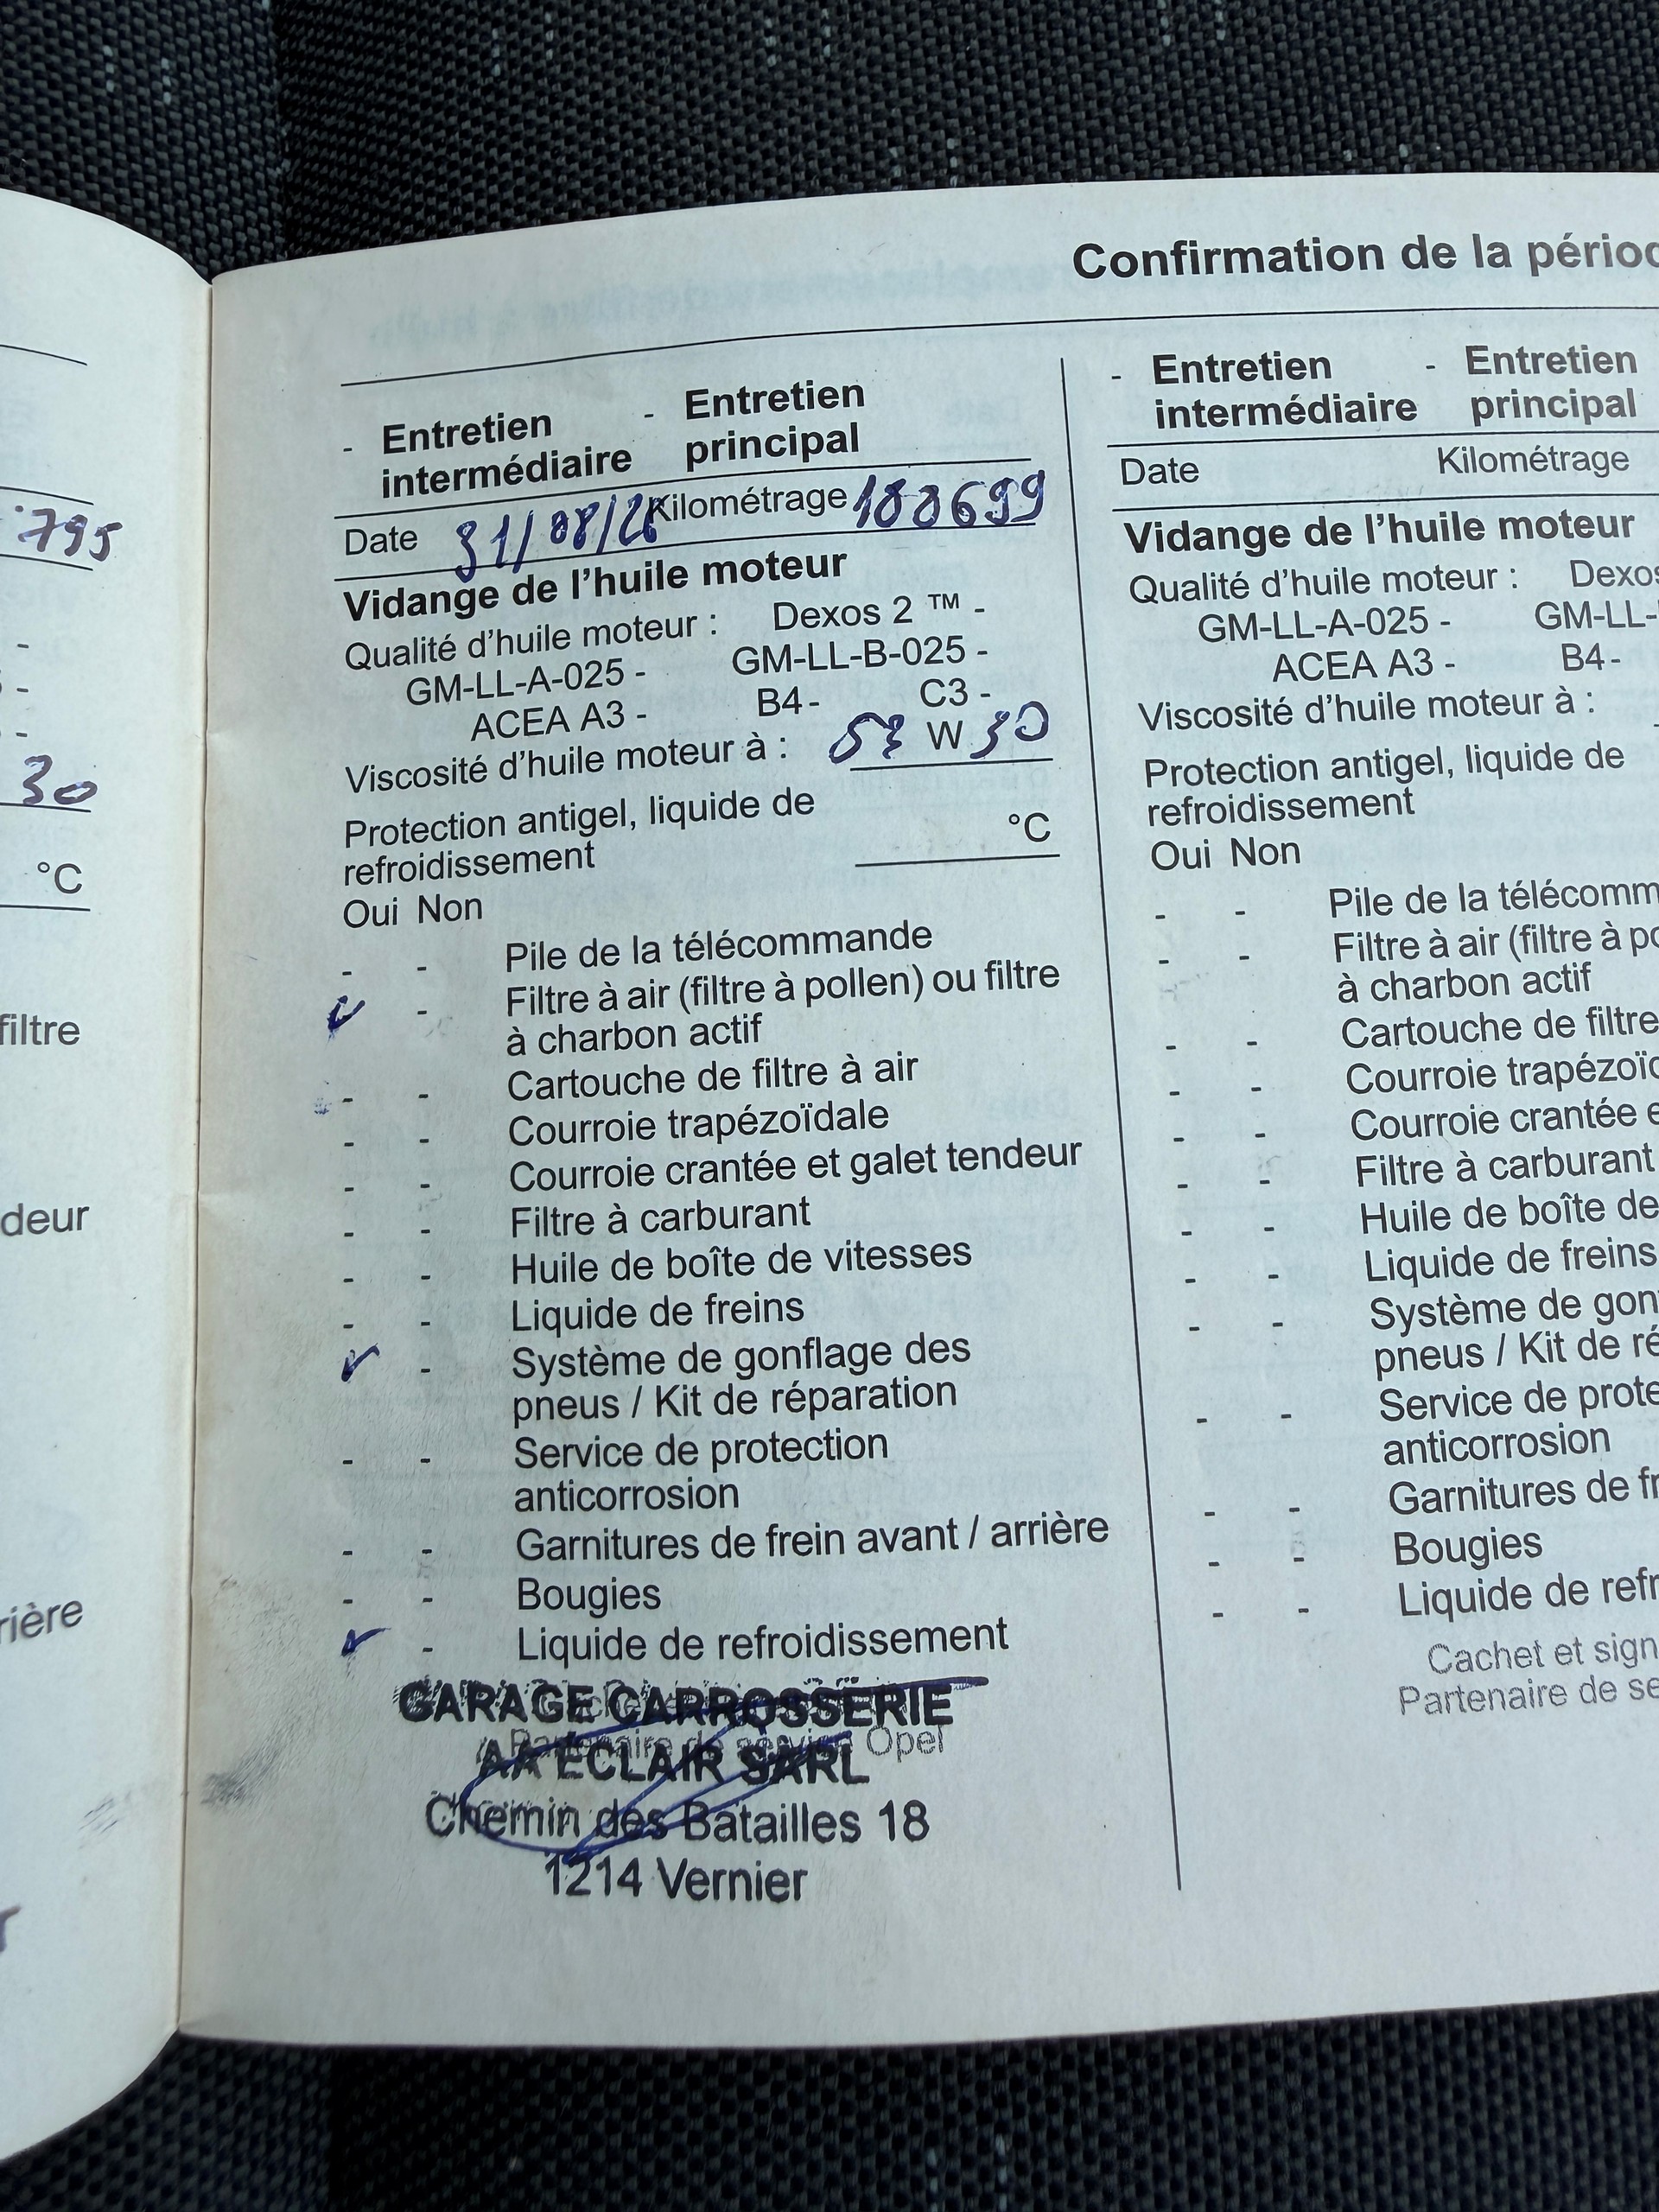 Confirmation de la périod
795
-
-
-
30
°C
filtre
deur
rière
- Entretien intermédiaire - Entretien principal
Date 31/08/2 Kilométrage 188699
Vidange de l'huile moteur
Qualité d'huile moteur : Dexos 2 ™ -
GM-LL-A-025 - GM-LL-B-025 -
ACEA A3 - B4- C3 -
Viscosité d'huile moteur à : W 30
Protection antigel, liquide de
refroidissement °C
Oui Non
- - Pile de la télécommande
✓ - Filtre à air (filtre à pollen) ou filtre
à charbon actif
- - Cartouche de filtre à air
- - Courroie trapézoïdale
- - Courroie crantée et galet tendeur
- - Filtre à carburant
- - Huile de boîte de vitesses
- - Liquide de freins
✓ - Système de gonflage des
pneus / Kit de réparation
- - Service de protection
anticorrosion
- - Garnitures de frein avant / arrière
- - Bougies
✓ - Liquide de refroidissement
Partenaire de service Opel
GARAGE CARROSSERIE
AA ECLAIR SARL
Chemin des Batailles 18
1214 Vernier
- Entretien intermédiaire - Entretien principal
Date Kilométrage
Vidange de l'huile moteur
Qualité d'huile moteur : Dexos
GM-LL-A-025 - GM-LL-
ACEA A3 - B4-
Viscosité d'huile moteur à :
Protection antigel, liquide de
refroidissement
Oui Non
- - Pile de la télécomm
- - Filtre à air (filtre à po
à charbon actif
- - Cartouche de filtre
- - Courroie trapézoïd
- - Courroie crantée e
- - Filtre à carburant
- - Huile de boîte de
- - Liquide de freins
- - Système de gon
pneus / Kit de ré
- - Service de prote
anticorrosion
- - Garnitures de fr
- - Bougies
- - Liquide de refr
Cachet et sign
Partenaire de se